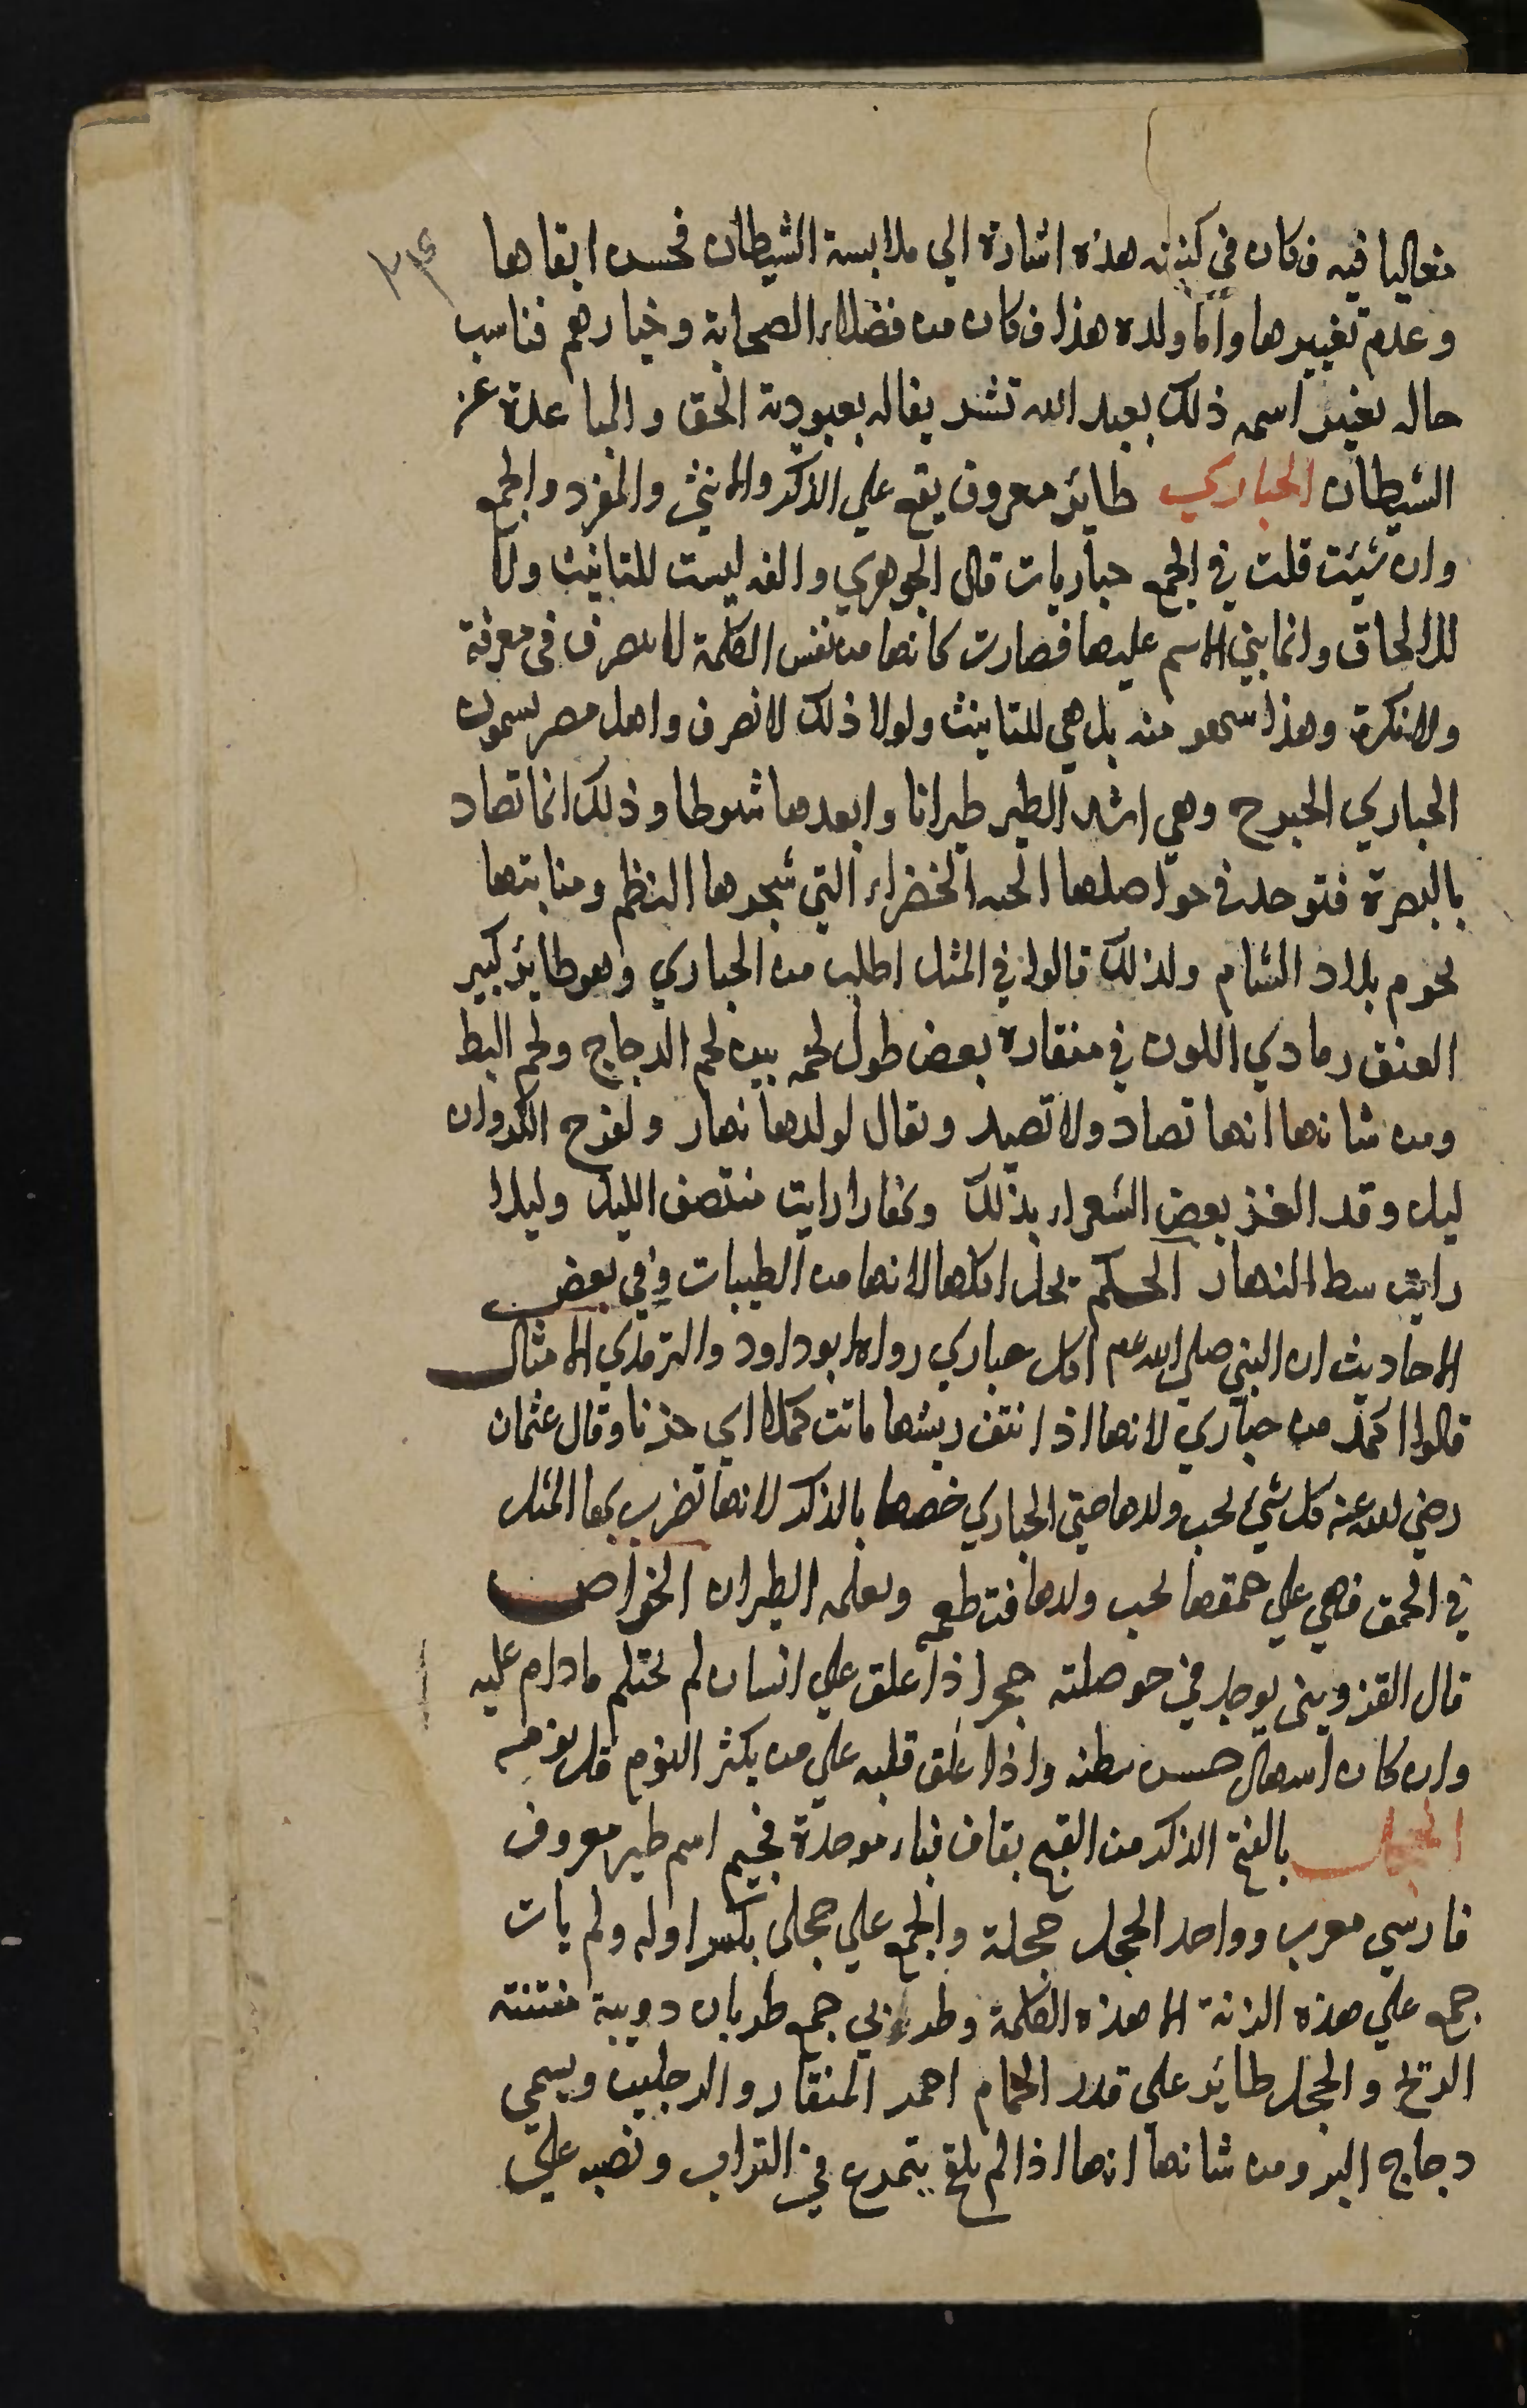 متغاليا فيه فكان في كنيته هذه اشارة الي ملابسة الشيطان فحسن ابقاها
وعدم تغييرها واما ولده هذا فكان من فضلاء الصحابة وخيارهم فناسب
حاله تغيير اسمه ذلك بعبد الله تشريفا له بعبودية الحق والمباعدة عن
الشيطان الحباري طاير معروف يقع علي الذكر والانثي والمفرد والجمع
وان شيت قلت في الجمع حباريات قال الجوهري والفه ليست للتانيث ولا
للالحاق وانما بني الاسم عليها فصارت كانها من نفس الكلمة لا تنصرف في معرفة
ولا نكرة وهذا سهو منه بل هي للتانيث ولولا ذلك لانصرف واهل مصر يسمون
الحباري الحبرج وهي اشد الطير طيرانا وابعدها شوطا وذلك انما تصاد
بالبصرة فتوجد في حواصلها الحبه الخضراء التي شجرها البطم ومنابتها
تخوم بلاد الشام ولذلك قالوا في المثل اطلب من الحباري وهو طاير كبير
العنق رمادي اللون في منقاره بعض طول لحمه بين لحم الدجاج ولحم البط
ومن شانها انها تصاد ولا تصيد ويقال لولدها نهار ولفرخ الكروان
ليل وقد الغز بعض الشعراء بذلك ونهارا رايت منتصف الليل وليلا
رايت سط النهار الحكم يحل اكلها لانها من الطيبات وفي بعض
الاحاديث ان النبي صلي الله عم اكل حباري رواه ابو داود والترمذي الامثال
قالوا اكمد من حباري لانها اذا نتف ريشها ماتت كمدا اي حزنا وقال عثمان
رضي الله عنه كل شيء يحب ولدها حتي الحباري خصها بالذكر لانها تضرب بها المثل
في الحمق فهي علي حمقها تحب ولدها فتطعمه وتعلمه الطيران الخواص
قال القزويني يوجد في حوصلته حجر اذا علق علي انسان لم يحتلم ما دام عليه
وان كان اسهال حبس بطنه واذا علق قلبه علي من يكثر النوم قل نومه
الحجل بالفتح الذكر من القبج بقاف فباء موحدة فجيم اسم طير معروف
فارسي معرب وواحد الحجل حجلة والجمع علي حجلى بكسر اوله ولم يات
جمع علي هذه الزنة الا هذه الكلمة وظربي جمع ظربان دويبة منتنته
الريح والحجل طاير علي قدر الحمام احمر المنقار والرجلين ويسمي
دجاج البر ومن شانها انها اذا لم يلقح يتمرع في التراب وتصبه علي